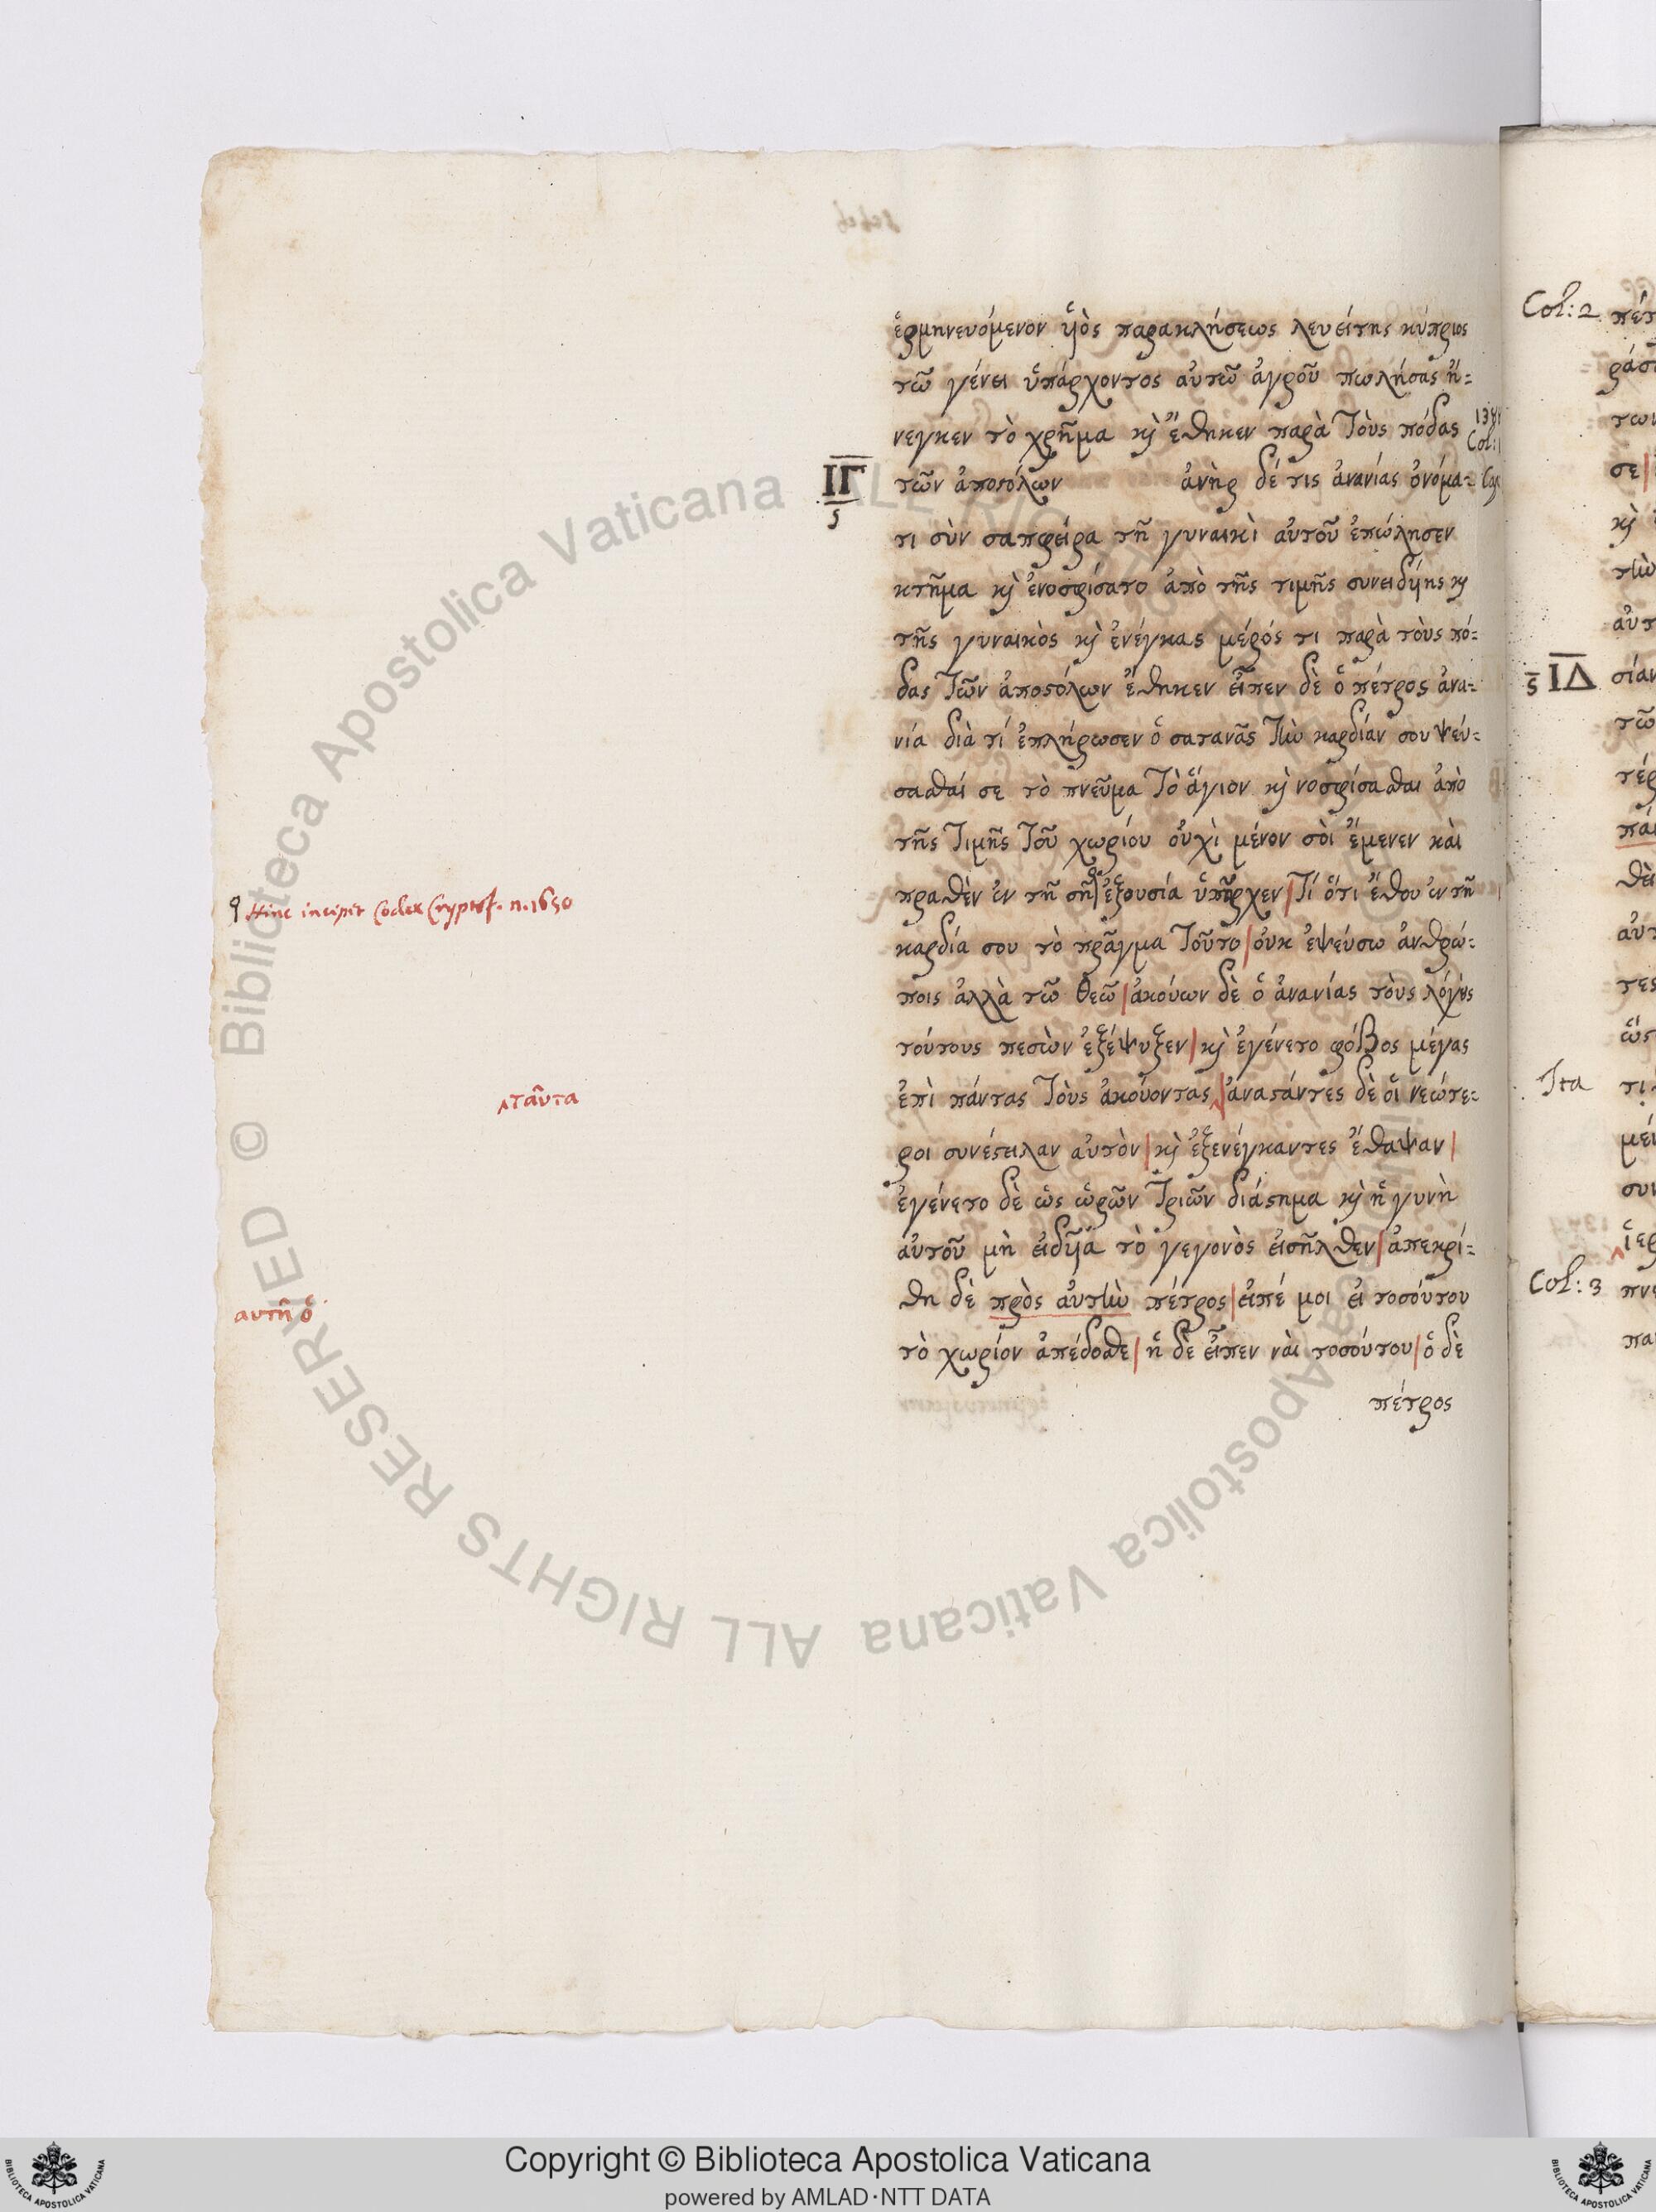 ἑρμηνευόμενον ὑιὸς παρακλήσεως λευείτης κύπριος
τῶ γένει ὑπάρχοντος αὐτῶ ἀγροῦ πωλήσας ἤ-
νεγκεν τὸ χρῆμα κὶ ἔθηκεν παρὰ τὸυς πόδας
Col: 1
ΙΓ
ς
τῶν ἀποστόλων ἀνὴρ δέ τις ἀνανίας ὀνόμα-
τι σὺν σαπφείρα τῆ γυναικὶ αὐτοῦ ἐπώλησεν
κτῆμα κὶ ἐνοσφίσατο ἀπὸ τῆς τιμῆς συνειδυίης κὶ
τῆς γυναικὸς κὶ ἐνέγκας μέρός τι παρὰ τὸυς πό-
δας τῶν ἀποστόλων ἔθηκεν εἶπεν δὲ ὁ πέτρος ἀνα-
νία διὰ τί ἐπλήρωσεν ὁ σατανᾶς τὴν καρδίαν σου ψεύ-
σασθαί σε τὸ πνεῦμα τὸ ἅγιον κὶ νοσφίσασθαι ἀπὸ
τῆς τιμῆς τοῦ χωρίου οὐχὶ μένον σὸι ἔμενεν κὰι
9 Hinc incipit Codex Cryptof. n. 1650
πραθὲν ἐν τῆ σῆ ἐξουσία ὑπῆρχεν | τί ὅτι ἔθου ἐν τῆ
καρδία σου τὸ πρᾶγμα τοῦτο | οὐκ ἐψεύσω ἀνθρώ-
ποις ἀλλὰ τῶ θεῶ | ἀκούων δὲ ὁ ἀνανίας τὸυς λόγους
τούτους πεσὼν ἐξέψυξεν | κὶ ἐγένετο φόβος μέγας
‸ταῦτα
ἐπὶ πάντας τὸυς ἀκούοντας‸ | ἀναστάντες δὲ ὁι νεώτε-
ροι συνέστειλαν αὐτὸν | κὶ ἐξενέγκαντες ἔθαψαν |
ἐγένετο δὲ ὡς ὡρῶν τριῶν διάστημα κὶ ἡ γυνὴ
αὐτοῦ μὴ ειδυῖα τὸ γεγονὸς ἐισῆλθεν | ἀπεκρί-
αυτῆ ὁ
θη δὲ πρὸς ἀυτὴν πέτρος | ἐιπέ μοι ἐι τοσούτου
τὸ χωρίον ἀπέδοσθε | ἡ δὲ εἶπεν νὰι τοσούτου | ὁ δὲ
πέτρος
Col: 2
ς ΙΔ
Ita
Col: 3
Copyright © Biblioteca Apostolica Vaticana
powered by AMLAD·NTT DATA